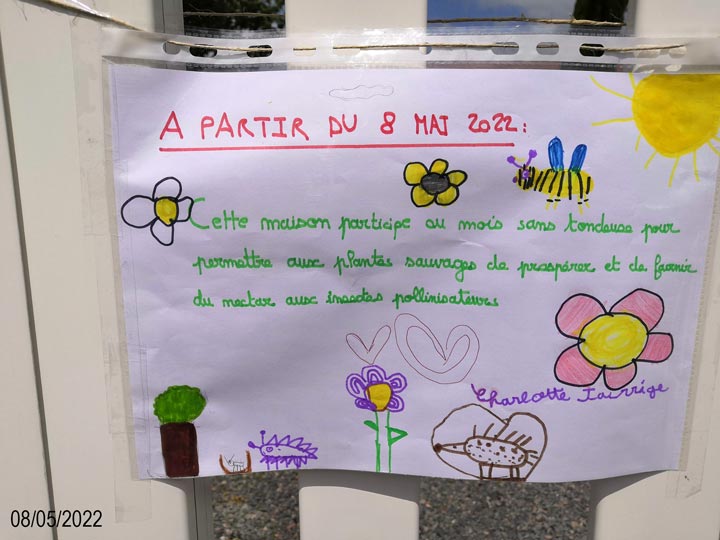 A PARTIR DU 8 MAI 2022:
Cette maison participe au mois sans tondeuse pour
permettre aux plantes sauvages de prospérer et de fournir
du nectar aux insectes pollinisateurs
Charlotte
08/05/2022